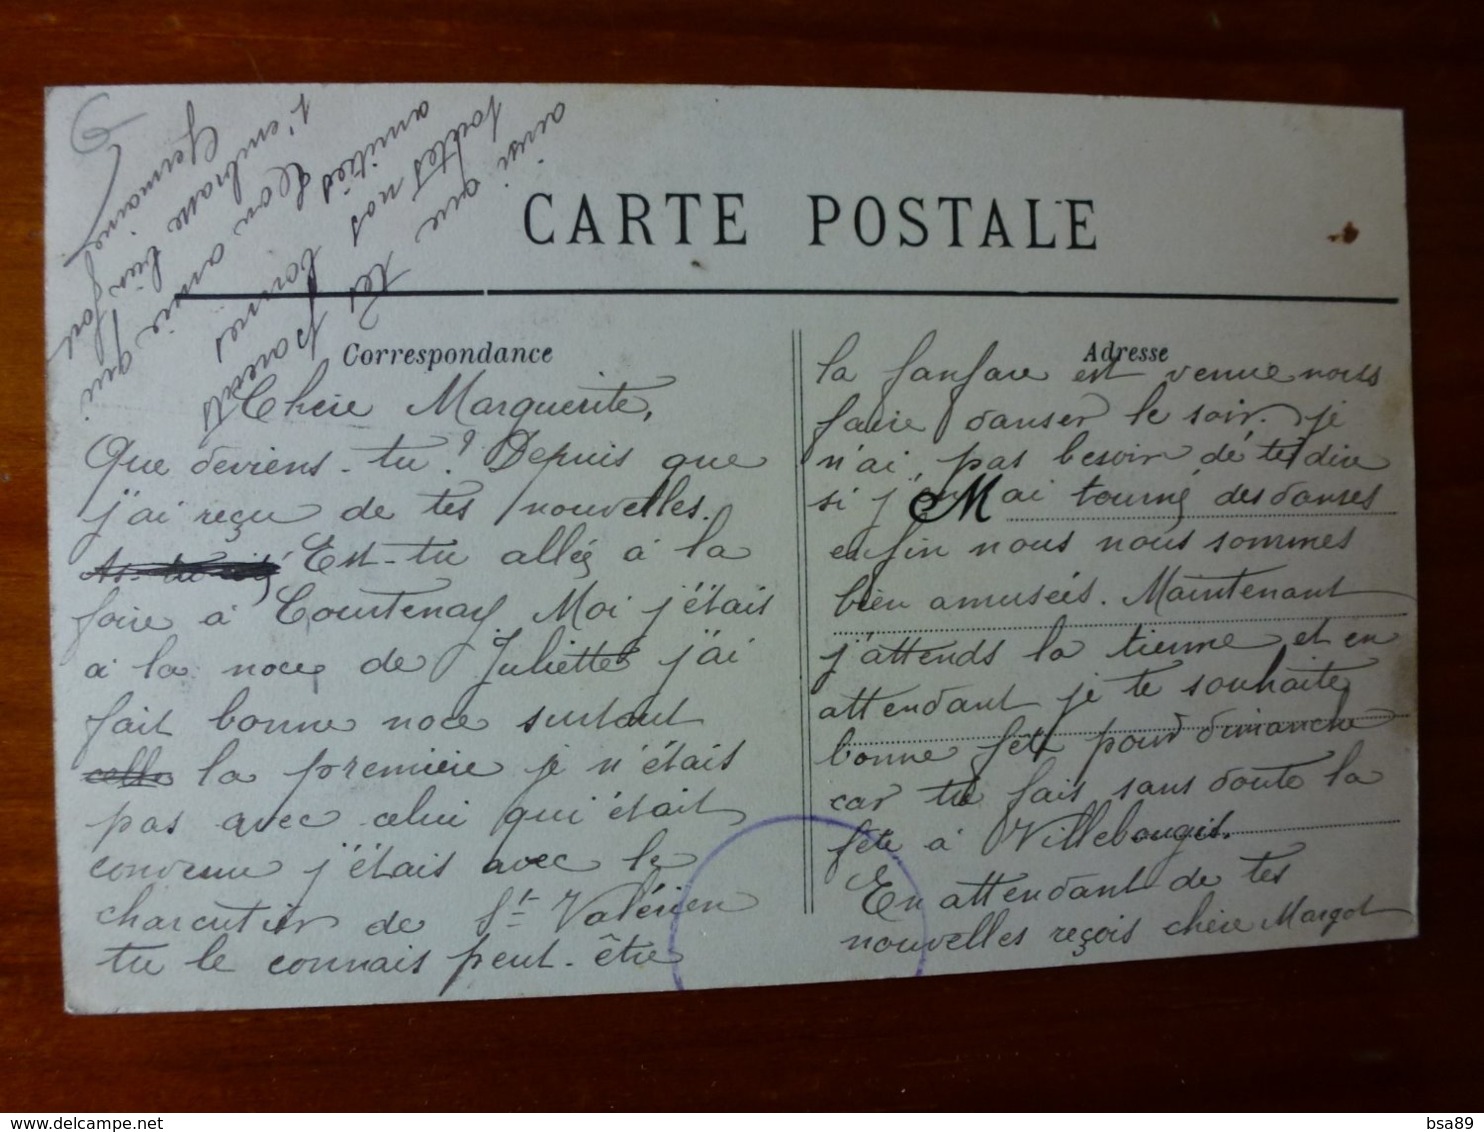 CARTE POSTALE
Correspondance
Chère Marguerite,
Que deviens-tu? Depuis que
j'ai reçu de tes nouvelles.
Est-tu allée à la
foire à Courtenay. Moi j'étais
à la noce de Juliette j'ai
fait bonne noce surtout
la première je n'étais
pas avec celui qui était
convenu j'étais avec le
charcutier de St Valérien
tu le connais peut-être
Adresse
la fanfare est venue nous
faire danser le soir. je
n'ai pas besoin de te dire
si j'en ai tourné des danses
enfin nous nous sommes
bien amusées. Maintenant
j'attends la tienne et en
attendant je te souhaite
bonne fête pour dimanche
car tu fais sans doute la
fête à Villebougis.
En attendant de tes
nouvelles reçois chère Margot
ainsi que tes parents
toutes nos bonnes
amitiés ton amie qui
t'embrasse bien fort
Germaine
G
M
bsa89